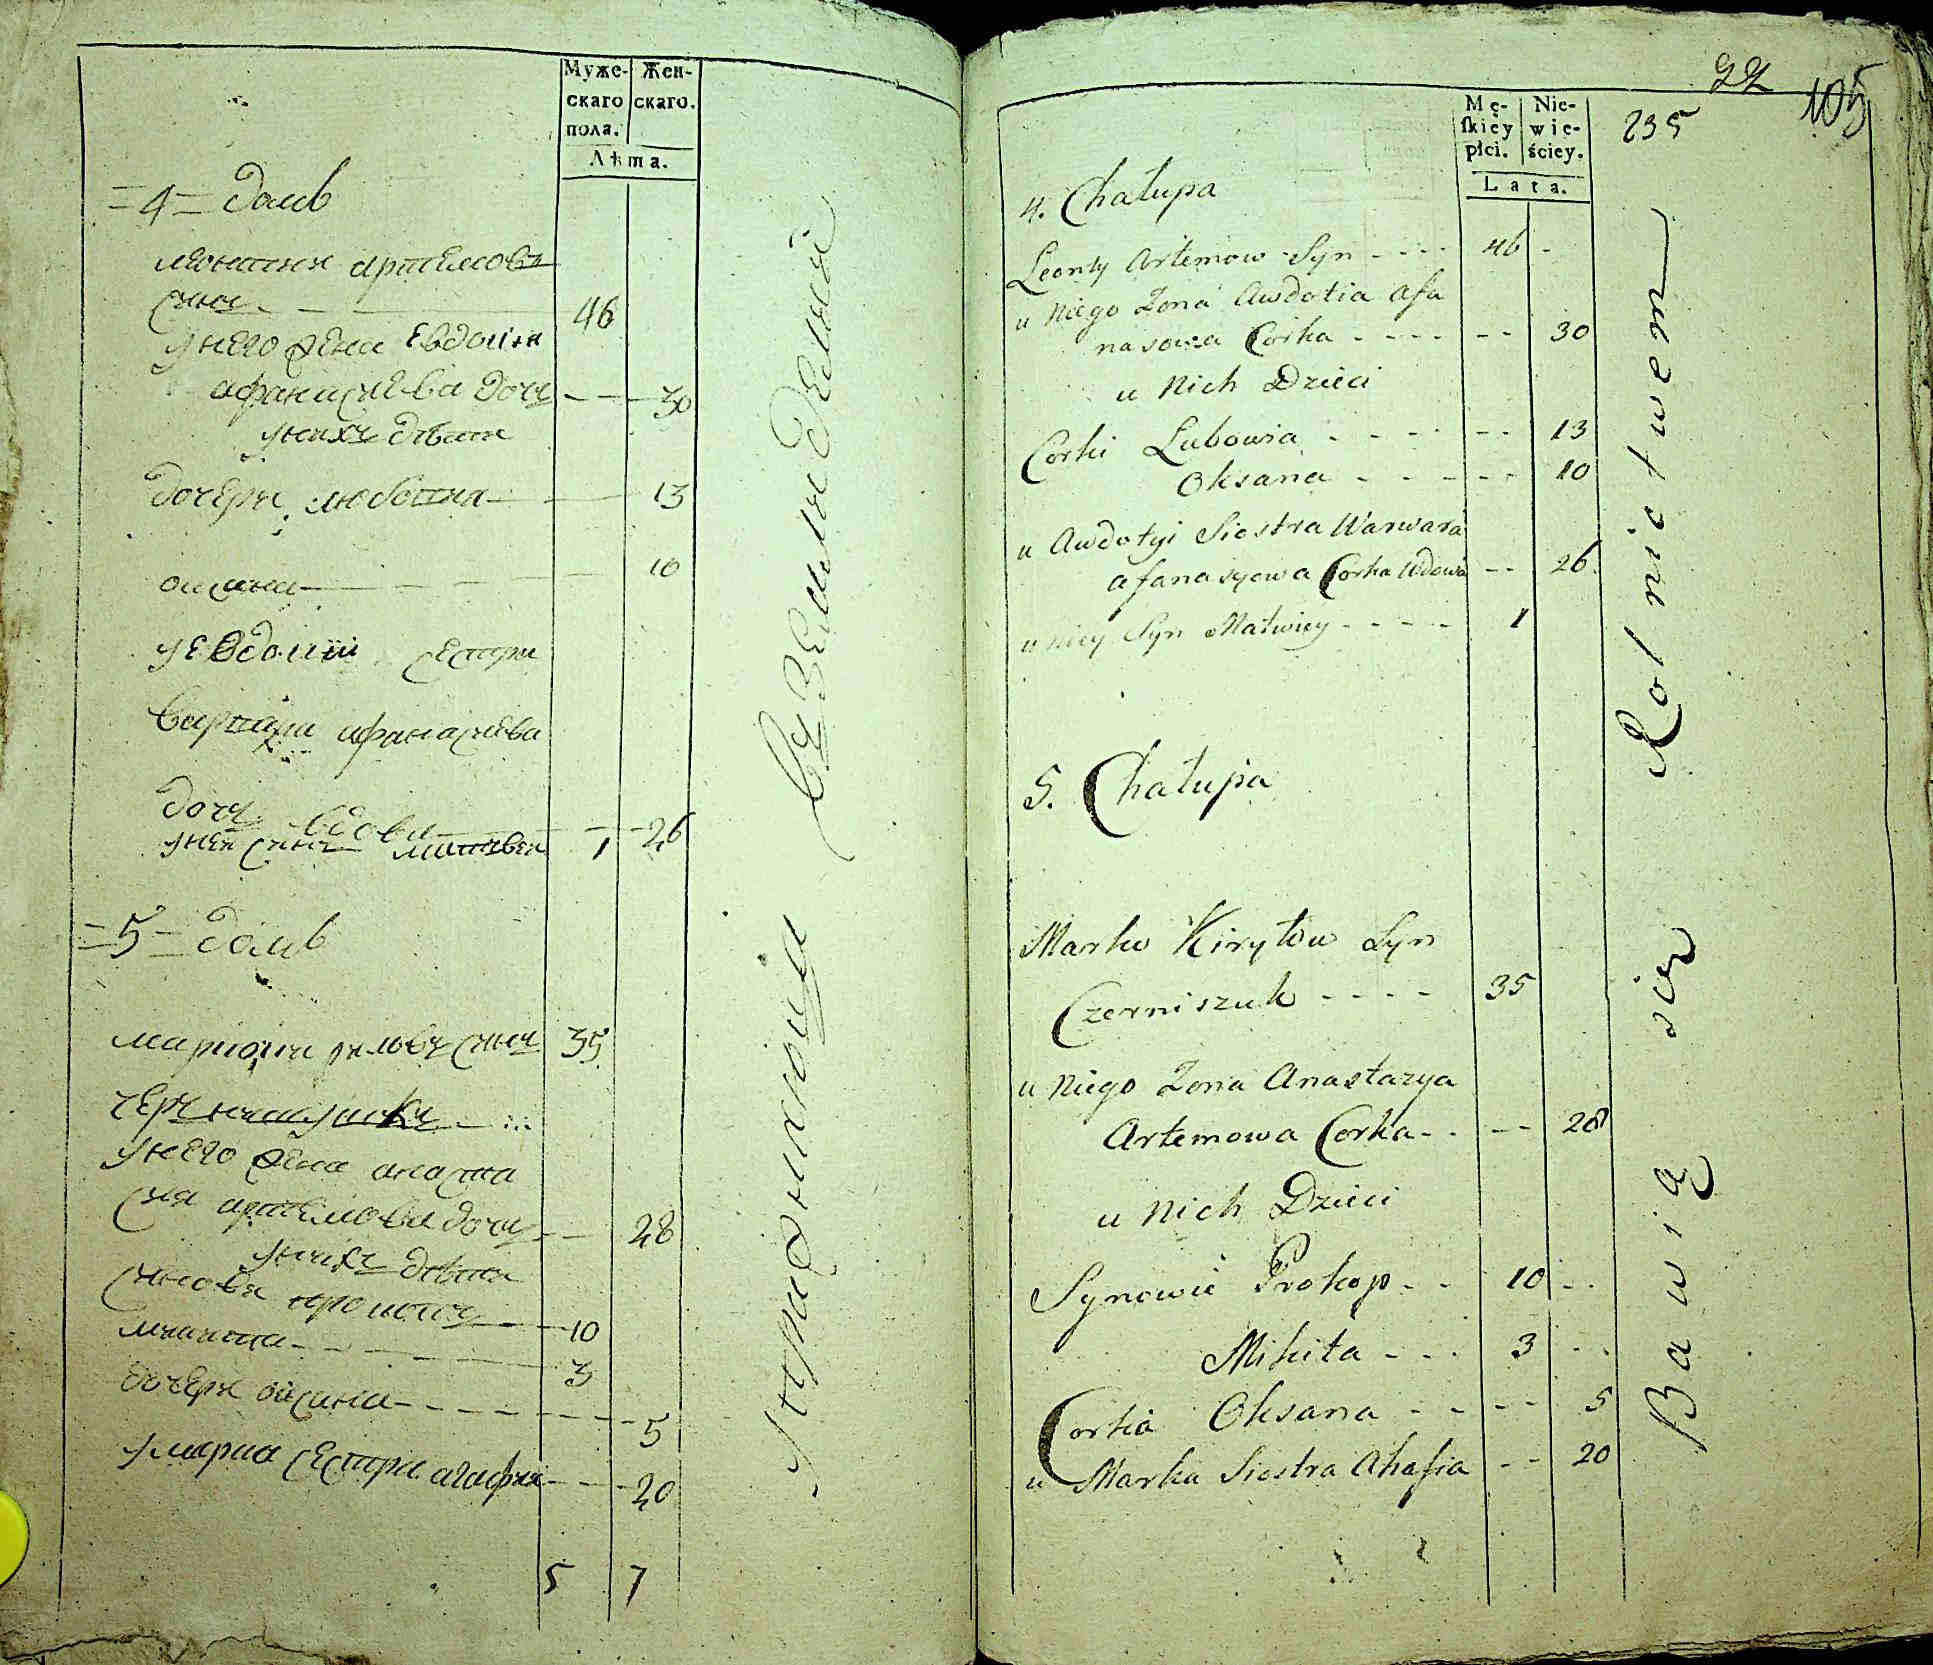 Муже-
скаго
пола.
Жен-
скаго.
Лѣта.
=4= домъ
леонтии артемовъ
сынъ - 46
у него жена Евдокия
афанасиева дочъ - - 30
у нихъ дѣти
дочери любовия - - 13
оксана - - - 10
у Евдокиіи сестра
варвара афанасиева
дочъ вдова - - 26
у нея сынъ матвеи 1
=5= домъ
марко кириловъ сынъ 35
чернышукъ - -
у него жена анаста
сия артемова дочъ - - 28
у нихъ дѣти
сыновя прокопъ - - 10
микита - - - - 3
дочери оксана - - - - - - 5
у марка сестра агафия - - - 20
5 7
упражняюца въ земляделии
22
105
235
Mę-
skiey
płci.
Nie-
wie-
ściey.
Lata.
4. Chałupa
Leonty Artemow Syn - - - 46 -
u Niego Żona Awdotia Afa
nasowa Corka - - - - - - 30
u Nich Dzieci
Corki Lubowia - - - - - - 13
Oksana - - - - - - 10
u Awdotyi Siostra Warwara
afanasyowa Corka Wdowa - - 26
u niey Syn Matwiey - - - - 1
5. Chałupa
Marko Kiryłow Syn
Czerniszuk - - - - 35
u Niego Żona Anastazya
Artemowa Corka - - - - 28
u Nich Dzieci
Synowie Prokop - - 10 - -
Mikita - - - 3 - -
Corka Oksana - - - - 5
u Marka Siostra Ahafia - - 20
Bawią się Rolnictwem